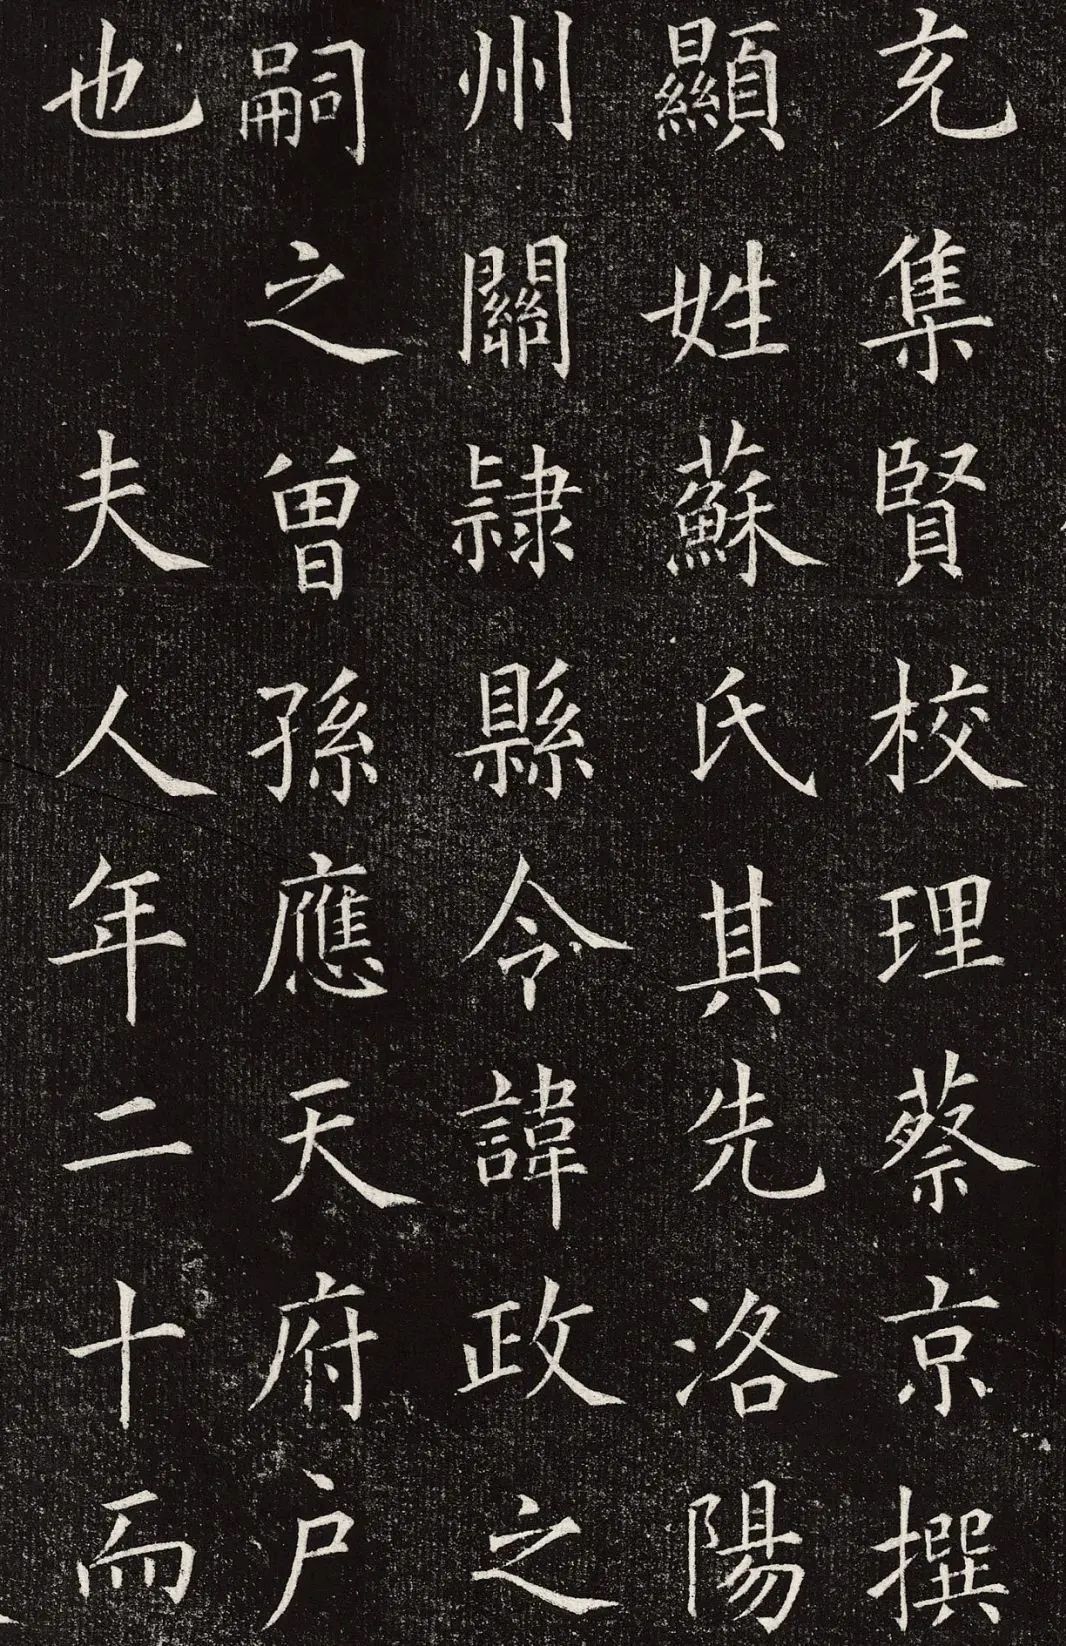 充集賢校理蔡京撰
顯姓蘇氏其先洛陽
州關隷縣令諱政之
嗣之曾孫應天府户
也 夫人年二十而